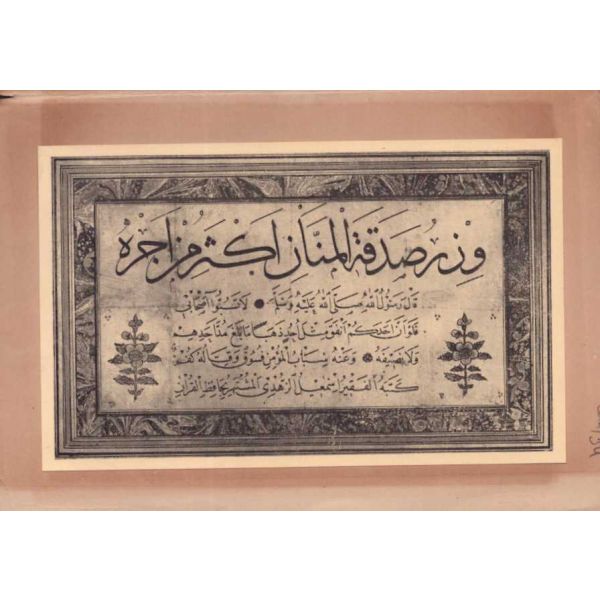 وِزْرُ صَدَقَةِ الْمَنَّانِ اَكْثَرُ مِنْ اَجْرِهِ
قَالَ رَسُولُ اللّٰهِ صَلَّى اللّٰهُ عَلَيْهِ وَسَلَّمَ لَا تَسُبُّوا اَصْحَابِي
فَلَوْ اَنَّ اَحَدَكُمْ اَنْفَقَ مِثْلَ اُحُدٍ ذَهَبًا مَا بَلَغَ مُدَّ اَحَدِهِمْ
وَلَا نَصِيفَهُ وَعَنْهُ سِبَابُ الْمُؤْمِنِ فُسُوقٌ وَقِتَالُهُ كُفْرٌ
كَتَبَهُ الْفَقِيرُ اِسْمٰعِيلُ الزُّهْدِي الْمُشْتَهِرُ بِحَافِظِ الْقُرْاٰنِ